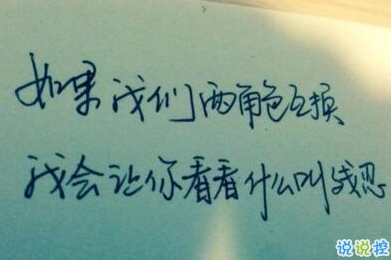 如果我们两角色互换
我会让你看看什么叫残忍
说说控